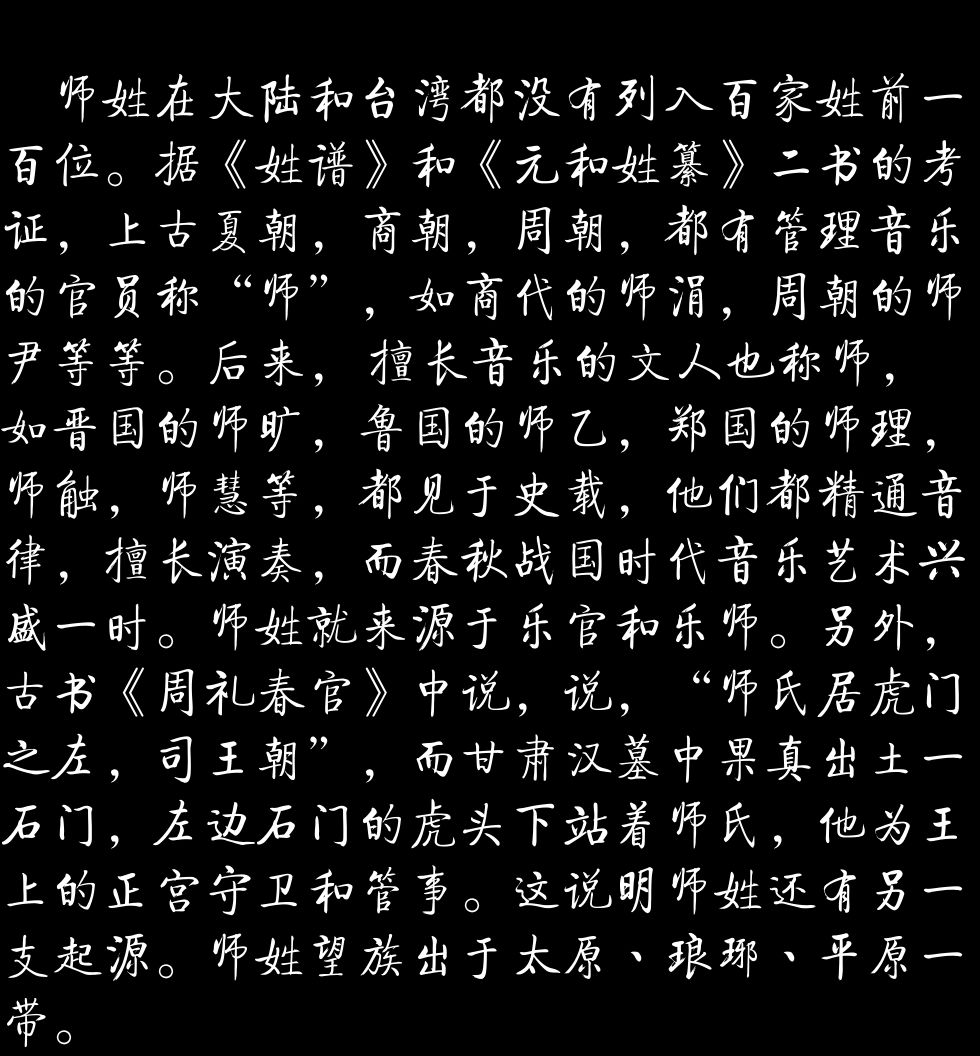 师姓在大陆和台湾都没有列入百家姓前一
百位。据《姓谱》和《元和姓纂》二书的考
证，上古夏朝，商朝，周朝，都有管理音乐
的官员称“师”，如商代的师涓，周朝的师
尹等等。后来，擅长音乐的文人也称师，
如晋国的师旷，鲁国的师乙，郑国的师理，
师触，师慧等，都见于史载，他们都精通音
律，擅长演奏，而春秋战国时代音乐艺术兴
盛一时。师姓就来源于乐官和乐师。另外，
古书《周礼春官》中说，说，“师氏居虎门
之左，司王朝”，而甘肃汉墓中果真出土一
石门，左边石门的虎头下站着师氏，他为王
上的正宫守卫和管事。这说明师姓还有另一
支起源。师姓望族出于太原、琅琊、平原一
带。